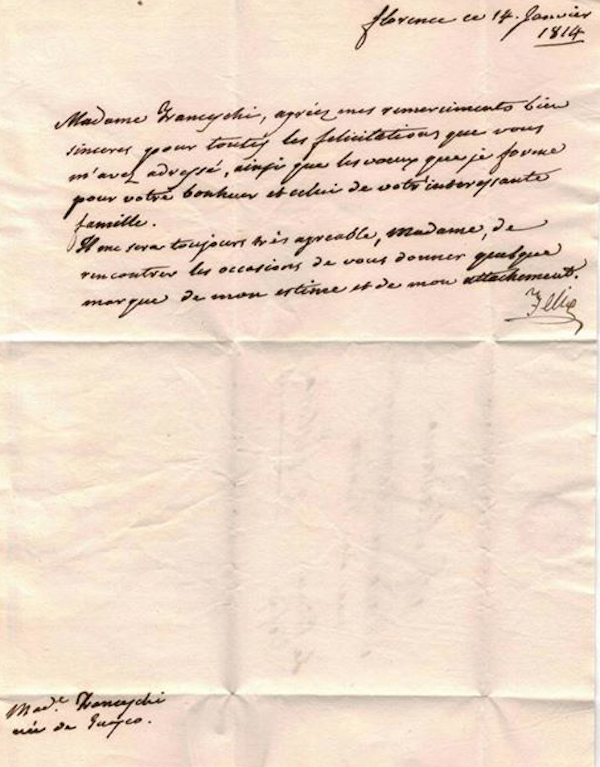 florence ce 14. Janvier
1814
Madame Franceschi, agréez mes remerciments bien
sinceres pour toutes les felicitations que vous
m'avez adressé, ainsi que les voeux que je forme
pour votre bonheur et celui de votre interessante
famille.
Il me sera toujours très agreable, Madame, de
rencontrer les occasions de vous donner quelque
marque de mon estime et de mon attachement.
Felix
Made. Franceschi
née de